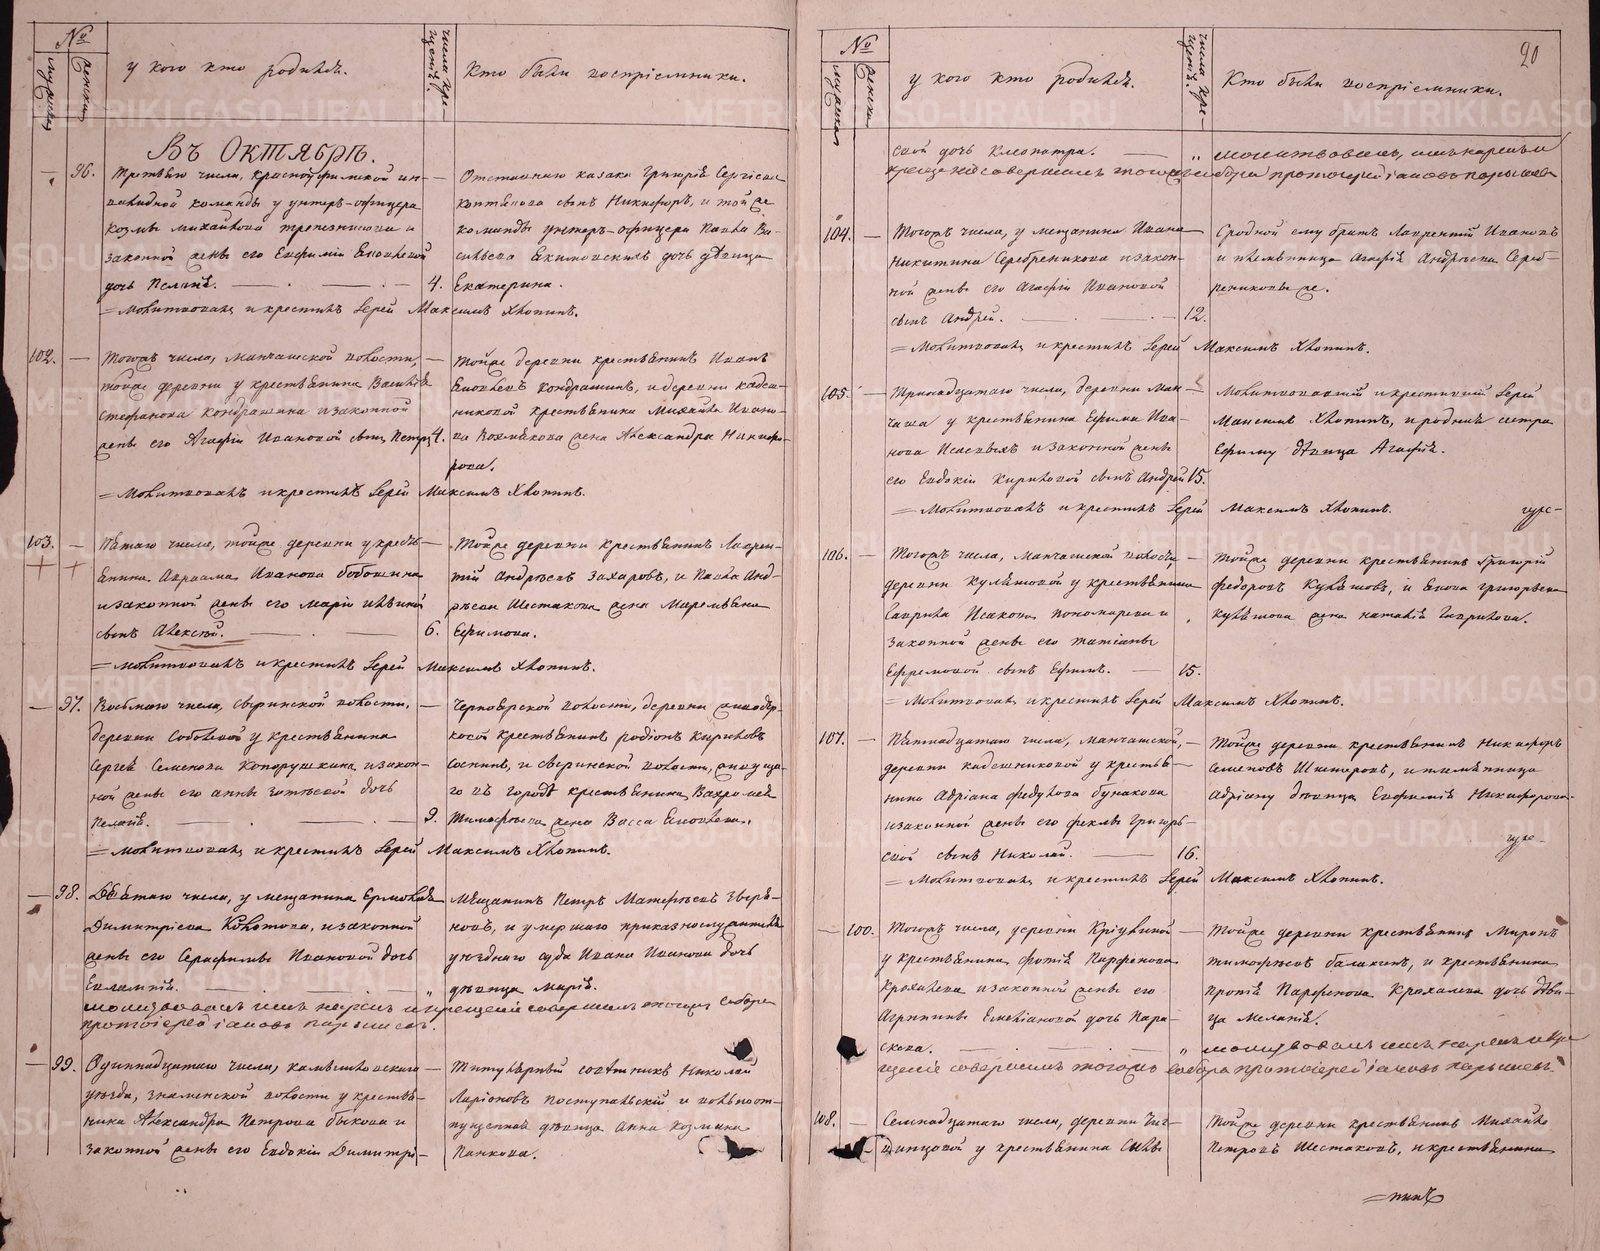 №
мужеска
женска
у кого кто родился.
числа кре-
щенія.
Кто были воспріемники.
Въ Октябрѣ.
96.
Третьяго числа, красноуфимской ин-
валидной команды у унтеръ-офицера
Козмы Михайлова и
законной жены его Евфиміи
дочь Пелагія.
4.
Отставнаго казака Григорія Сергіева
сынъ Никифоръ, и той же
команды унтеръ-офицера Павла Ва-
сильева дочь дѣвица
Екатерина.
=Молитвовалъ и крестилъ Іерей Максимъ Хлопинъ.
102.
Тогожъ числа, Манчажской волости,
тойже деревни у крестьянина Василія
Стефанова Кондрашина и законной
жены его Агафіи Ивановой сынъ Петръ
4.
Тойже деревни крестьянинъ Иванъ
Кондрашинъ, и деревни Кадеш-
никовой крестьянина Михайла Ивано-
ва жена Александра Никифо-
рова.
=Молитвовалъ и крестилъ Іерей Максимъ Хлопинъ.
103.
Пятаго числа, тойже деревни у кресть-
янина Авраама Иванова
и законной жены его Маріи
сынъ Алексѣй.
6.
Тойже деревни крестьянинъ Лаврен-
тій Андреевъ Захаровъ, и Павла Анд-
реева Шестакова жена Маремьяна
Ефимова.
=Молитвовалъ и крестилъ Іерей Максимъ Хлопинъ.
97.
Восьмаго числа, волости,
деревни у крестьянина
Сергея Семенова и закон-
ной жены его Анны дочь
Пелагія.
9.
волости, деревни
крестьянинъ Родіонъ Кириловъ
и волости, живуща-
го въ городѣ крестьянина
Тимофѣева жена Васса
=Молитвовалъ и крестилъ Іерей Максимъ Хлопинъ.
98.
Девятаго числа, у мещанина Ермолая
Димитріева и законной
жены его Серафимы Ивановой дочь
Евлампія.
Мещанинъ Петръ Матфѣевъ Звѣре-
новъ, и умершаго приказнослужителя
уѣзднаго суда Ивана Иванова дочь
дѣвица Марія.
молитвовалъ имя нарекъ и крещеніе совершилъ тогожъ собора
протоіерей Іаковъ
99.
Одиннадцатаго числа, Камышловскаго
уѣзда, Знаменской волости у крестья-
нина Александра Петрова Быкова и
законной жены его Евдокіи Димитрі-
Титулярный совѣтникъ Николай
Ларіоновъ Поступальскій и вольноот-
пущенная дѣвица Анна Козмина
Панкова.
20
№
мужеска
женска
у кого кто родился.
числа кре-
щенія.
Кто были воспріемники.
евой дочь Клеопатра.
молитвовалъ, имя нарекъ и
крещеніе совершилъ тогожъ собора протоіерей Іаковъ
104.
Тогожъ числа, у мещанина Ивана
Никитина Серебренникова и закон-
ной жены его Агафіи Ивановой
сынъ Андрей.
12.
Сродной ему братъ Лаврентій Ивановъ
и племянница Агафія Андреева Сереб-
ренниковы же.
=Молитвовалъ и крестилъ Іерей Максимъ Хлопинъ.
105.
Тринадцатаго числа, деревни Ман-
чажа у крестьянина Ефима Ива-
нова и законной жены
его Евдокіи Кириловой сынъ Андрей
15.
Молитвовавшій и крестившій Іерей
Максимъ Хлопинъ, и родная сестра
Ефиму дѣвица Агафія.
=Молитвовалъ и крестилъ Іерей Максимъ Хлопинъ.
106.
Тогожъ числа, Манчажской волости,
деревни Куляшовой у крестьянина
Гаврила Исакова Пономарева и
законной жены его Татіаны
Ефремовой сынъ Ефимъ.
15.
Тойже деревни крестьянинъ Григорій
Федоровъ Куляшовъ, и Григорьева
Куляшова жена Наталія Гаврилова.
=Молитвовалъ и крестилъ Іерей Максимъ Хлопинъ.
107.
Пятнадцатаго числа, Манчажской,
деревни Кадешниковой у крестья-
нина Адріана Федулова Бунакова
и законной жены его Феклы Григорь-
евой сынъ Николай.
16.
Тойже деревни крестьянинъ Никифоръ
Семеновъ и племянница
Адріану дѣвица Евфимія Никифорова.
=Молитвовалъ и крестилъ Іерей Максимъ Хлопинъ.
100.
Тогожъ числа, деревни
у крестьянина Фотія Парфенова
Крохалева и законной жены его
Агриппины Емеліановой дочь Пара-
скева.
Тойже деревни крестьянинъ Миронъ
Тимофѣевъ Балакинъ, и крестьянина
Парфенова Крохалева дочь дѣви-
ца Меланія.
молитвовалъ имя нарекъ и кре-
щеніе совершилъ тогожъ собора протоіерей Іаковъ
108.
Семнадцатаго числа, деревни
у крестьянина
Тойже деревни крестьянинъ Михайло
Петровъ Шестаковъ, и крестьянина
METRIKI.GASO-URAL.RU